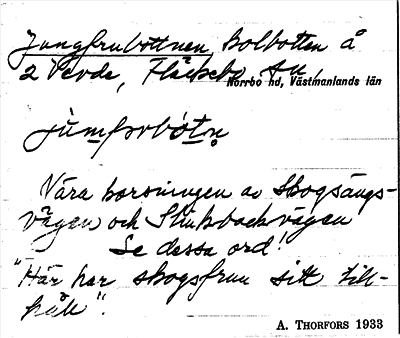 Jungfrubottnen, kolbotten å
2 Verde, Fläckebo sn,
Norrbo hd, Västmanlands län
jùmfrubót̀n̥
Nära korsningen av Skogsängs-
vägen och Stinkbackvägen
Se dessa ord!
"Här har skogsfrun sitt till-
håll".
A. THORFORS 1933